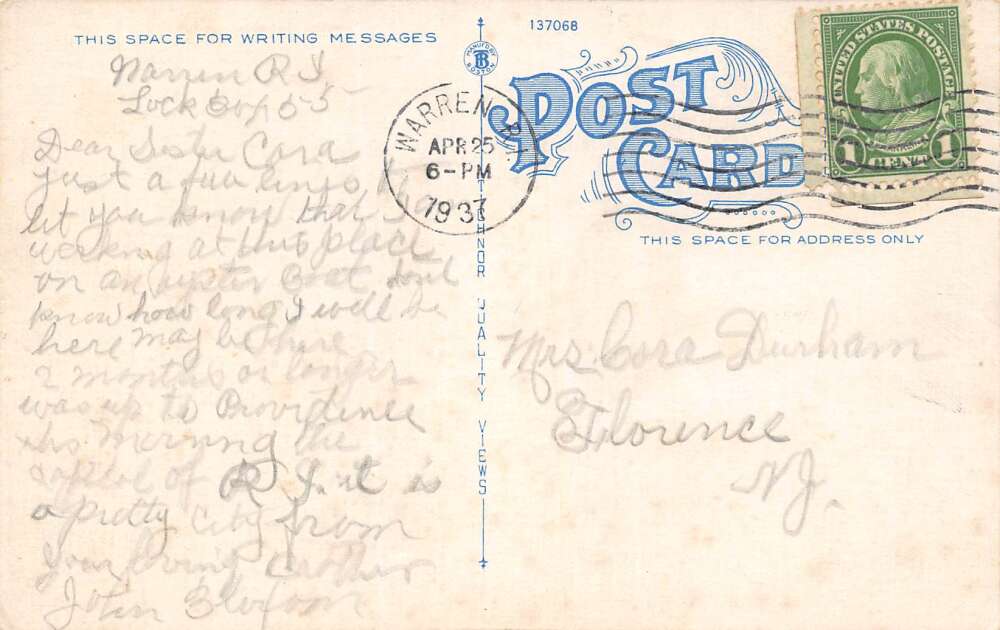 THIS SPACE FOR WRITING MESSAGES
Warren R I
Lock Box 55
Dear Sister Cora
Just a few lines to
let you know that I am
working at this place
on an oyster Boat dont
know how long I will be
here may be here
2 months or longer
was up to Providence
this morning the
capitol of R I. it is
a pretty City from
your loving Brother
John
MANUF'D BY
TB
BOSTON
TICHNOR QUALITY VIEWS
137068
POST
CARD
WARREN R.I.
APR 25
6-PM
1937
UNITED STATES POSTAGE
FRANKLIN
1 CENT 1
THIS SPACE FOR ADDRESS ONLY
Mrs Cora Durham
Florence
NJ.